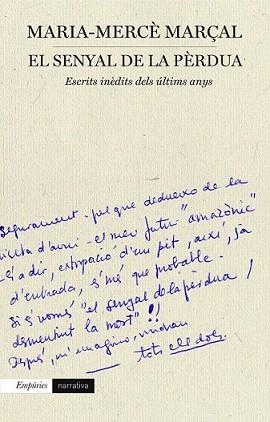 MARIA-MERCÈ MARÇAL
EL SENYAL DE LA PÈRDUA
Escrits inèdits dels últims anys
Segurament - pel que dedueixo de la
visita d'avui - el meu futur "amazònic"
és a dir, extirpació d'un pit, així, ja
d'entrada, és més que probable.
Si és només "el senyal de la pèrdua,
desmentint la mort"!!
Després, m'imagino, vindran
tots els dols.
Empúries narrativa